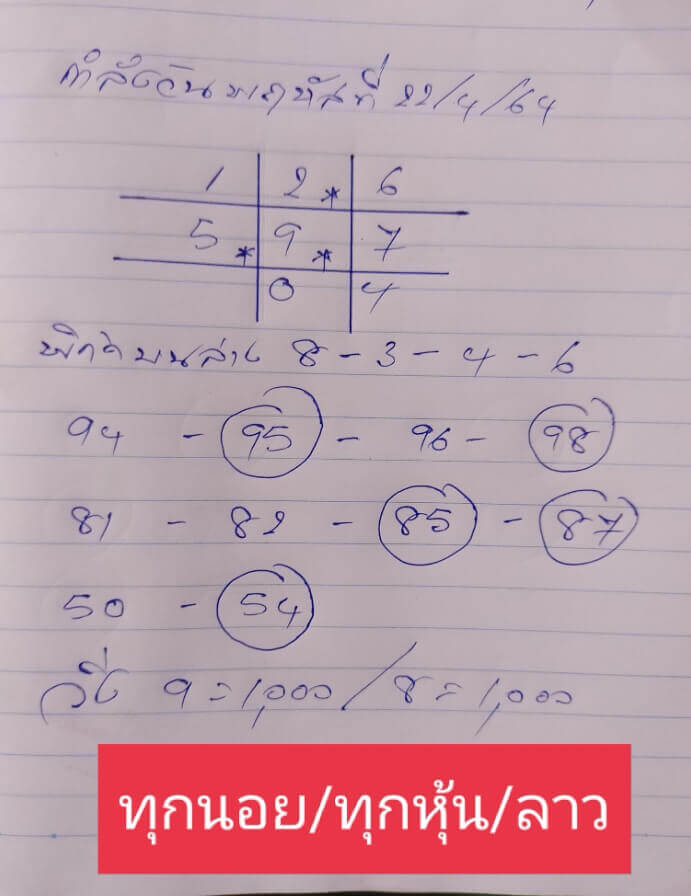 กำลังวันพฤหัสที่ 22/4/64
1 2* 6
5* 9* 7
0 4
พิกัดบนล่าง 8 - 3 - 4 - 6
94 - 95 - 96 - 98
81 - 82 - 85 - 87
50 - 54
วิ่ง 9 = 1,000 / 8 = 1,000
ทุกนอย/ทุกหุ้น/ลาว